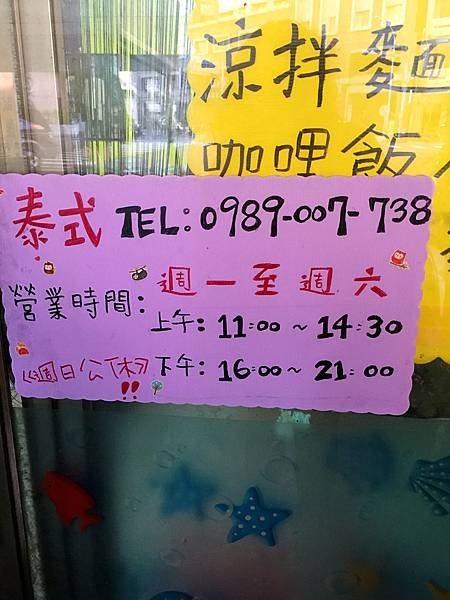 涼拌麵
咖哩飯
泰式 TEL: 0989-007-738
營業時間: 週一至週六
上午: 11:00 ~ 14:30
《週日公休》 下午: 16:00 ~ 21:00
!!